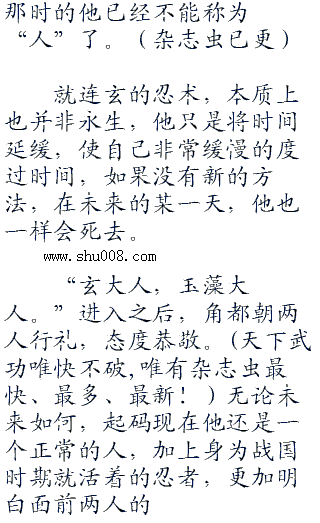 那时的他已经不能称为
“人”了。（杂志虫已更）
就连玄的忍术，本质上
也并非永生，他只是将时间
延缓，使自己非常缓慢的度
过时间，如果没有新的方
法，在未来的某一天，他也
一样会死去。
www.shu008.com
“玄大人，玉藻大
人。”进入之后，角都朝两
人行礼，态度恭敬。(天下武
功唯快不破,唯有杂志虫最
快、最多、最新！）无论未
来如何，起码现在他还是一
个正常的人，加上身为战国
时期就活着的忍者，更加明
白面前两人的